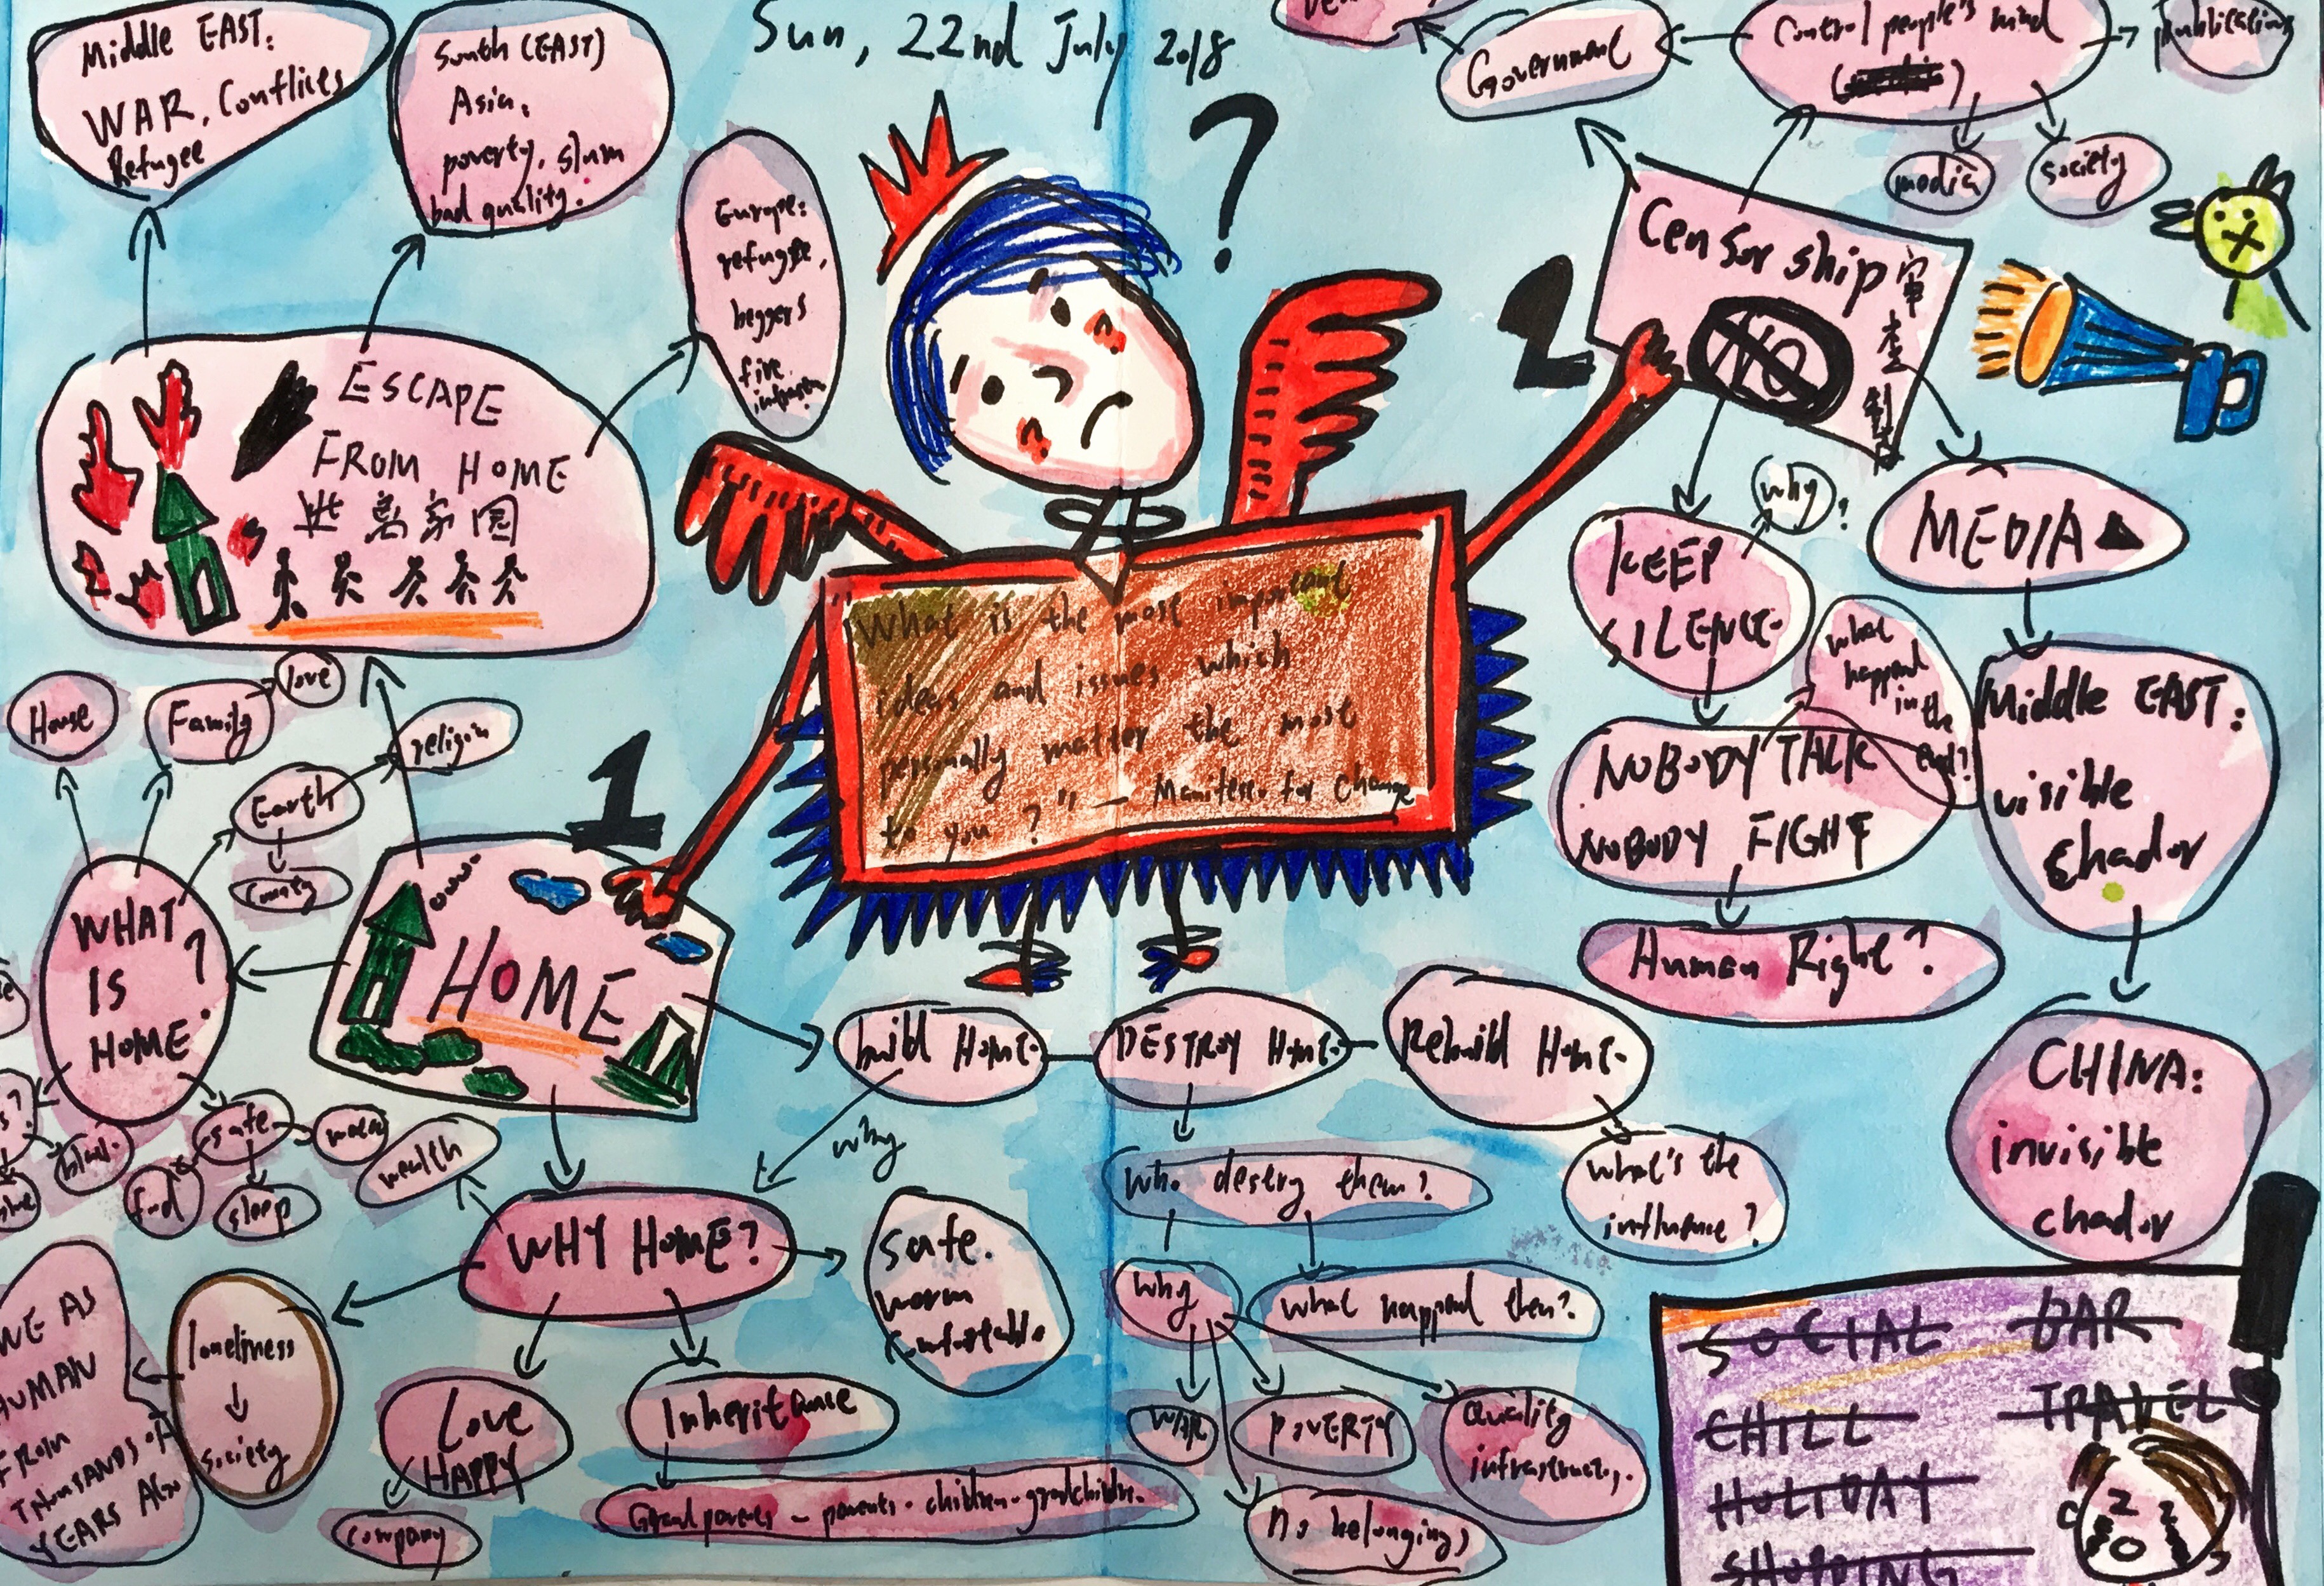 Sun, 22nd July 2018
?
Middle EAST:
WAR, Conflicts
Refugee
South (EAST)
Asia:
poverty, slum
bad quality.
Europe:
refugee,
beggers
ESCAPE
FROM HOME
家園
House
Family
love
Earth
religion
1
HOME
WHAT
IS
HOME?
safe
food
sleep
wealth
build HOME
DESTROY HOME
Rebuild HOME
why
WHY HOME?
safe.
warm
comfortable
loneliness
society
WE AS
HUMAN
FROM
THOUSANDS OF
YEARS AGO
LOVE
HAPPY
company
Inheritance
Grandparents - parents - children - grandchildren
who destroy them?
why
what happend then?
WAR
POVERTY
Quality
no belongings
what's the
influence?
"What is the most important
ideas and issues which
personally matter the most
to you?" — Manifesto for change
2
Censorship
審查制
NO
Government
Control people's mind
media
society
publication
KEEP
SILENCE
why?
NOBODY TALK
NOBODY FIGHT
what
happend
in the
end?
Human Right?
MEDIA
Middle EAST:
visible
chador
CHINA:
invisible
chador
SOCIAL BAR
CHILL TRAVEL
HOLIDAY
SHOPPING